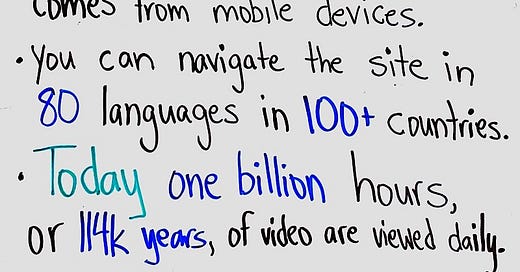 comes from mobile devices.
• You can navigate the site in
80 languages in 100+ countries.
• Today one billion hours,
or 114k years, of video are viewed daily.